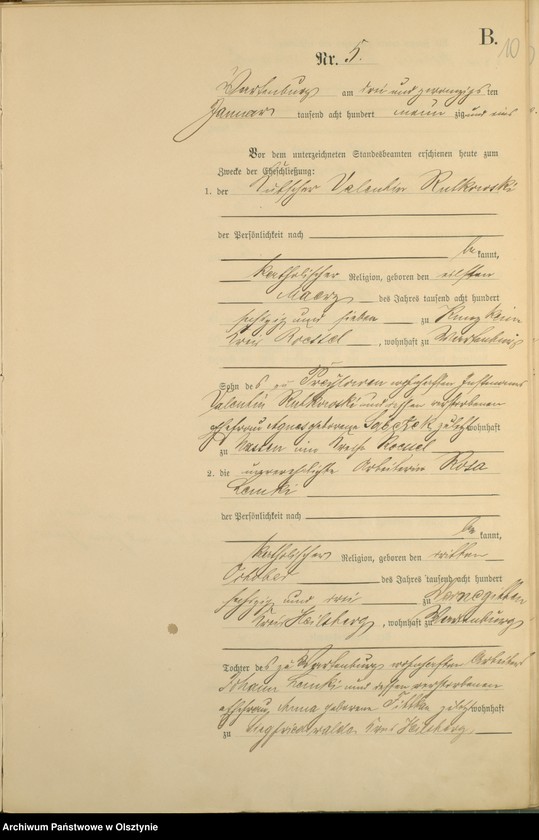 B.
10
Nr. 5.
Wartenburg am drei und zwanzigsten
Januar tausend acht hundert neunzig und eins
Vor dem unterzeichneten Standesbeamten erschienen heute zum
Zwecke der Eheschließung:
1. der Kutscher Valentin Rutkowski
der Persönlichkeit nach
bekannt,
katholischer Religion, geboren den eilften
Maerz des Jahres tausend acht hundert
sechszig und sieben zu
Kreis Roessel, wohnhaft zu Wartenburg
Sohn des zu wohnhaften
Valentin Rutkowski und dessen verstorbenen
Ehefrau Agnes geborene zuletzt wohnhaft
zu im Kreise Roessel
2. die unverehelichte Arbeiterin Rosa
Lemki
der Persönlichkeit nach
bekannt,
katholischer Religion, geboren den dritten
October des Jahres tausend acht hundert
sechszig und drei zu Wernegitten
Kreis Heilsberg, wohnhaft zu Wartenburg
Tochter des zu Wartenburg wohnhaften Arbeiters
Johann Lemki und dessen verstorbenen
Ehefrau Anna geborene zuletzt wohnhaft
zu Siegfriedswalde Kreis Heilsberg
Archiwum Państwowe w Olsztynie